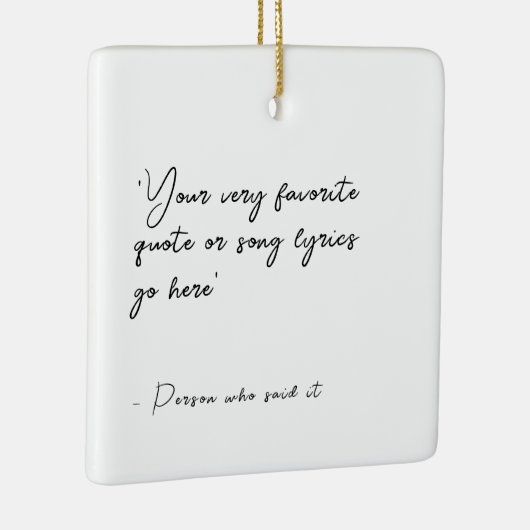 'Your very favorite
quote or song lyrics
go here'
- Person who said it